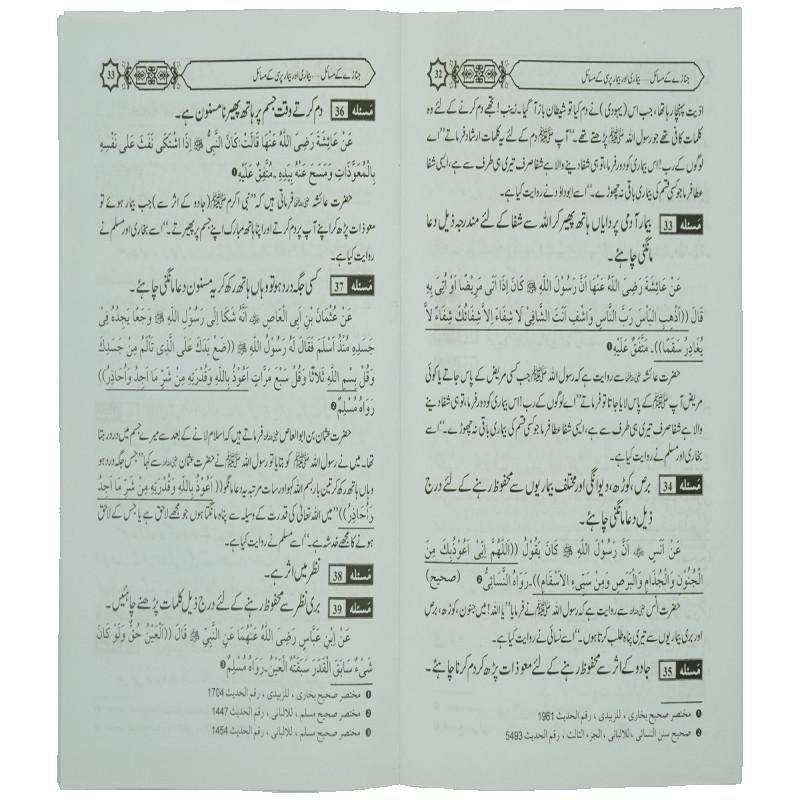 32
جنازے کے مسائل.....بیماری اور بیمار پرسی کے مسائل
اذیت پہنچا رہا تھا، جب اس (یہودی) نے دم کیا تو شیطان باز آ گیا۔ زینب! تجھے دم کرنے کے لئے وہ
کلمات کافی تھے جو رسول اللہ ﷺ پڑھتے تھے۔‘‘ آپ ﷺ دم کے لئے یہ کلمات ارشاد فرماتے ’’اے
لوگوں کے رب! اس بیماری کو دور فرما، تو ہی شفا دینے والا ہے شفا صرف تیری ہی طرف سے ہے، ایسی شفا
عطا فرما جو کسی قسم کی بیماری باقی نہ چھوڑے۔‘‘ اسے ابوداؤد نے روایت کیا ہے۔
مسئلہ 33 بیمار آدمی پر دایاں ہاتھ پھیر کر اللہ سے شفا کے لئے مندرجہ ذیل دعا
مانگنی چاہئے۔
عَنْ عَائِشَةَ رَضِیَ اللّٰهُ عَنْهَا أَنَّ رَسُوْلَ اللّٰهِ ﷺ كَانَ إِذَا أَتٰی مَرِیْضًا أَوْ أُتِیَ بِهِ
قَالَ ((أَذْهِبِ الْبَأْسَ رَبَّ النَّاسِ وَاشْفِ أَنْتَ الشَّافِیْ لَا شِفَاءَ إِلَّا شِفَائُكَ شِفَاءً لَا
یُغَادِرُ سَقَمًا))۔ مُتَّفَقٌ عَلَیْهِ ❶
حضرت عائشہ رضی اللہ عنہا سے روایت ہے کہ رسول اللہ ﷺ جب کسی مریض کے پاس جاتے یا کوئی
مریض آپ ﷺ کے پاس لایا جاتا تو فرماتے ’’اے لوگوں کے رب! اس بیماری کو دور فرما، تو ہی شفا دینے
والا ہے شفا صرف تیری ہی طرف سے ہے، ایسی شفا عطا فرما جو کسی قسم کی بیماری باقی نہ چھوڑے۔‘‘ اسے
بخاری اور مسلم نے روایت کیا ہے۔
مسئلہ 34 برص، کوڑھ، دیوانگی اور مختلف بیماریوں سے محفوظ رہنے کے لئے درج
ذیل دعا مانگنی چاہئے۔
عَنْ أَنَسٍ ﷺ أَنَّ رَسُوْلَ اللّٰهِ ﷺ كَانَ یَقُوْلُ ((اَللّٰهُمَّ إِنِّیْ أَعُوْذُبِكَ مِنَ
الْجُنُوْنِ وَالْجُذَامِ وَالْبَرَصِ وَمِنْ سَیِّیءِ الْأَسْقَامِ))۔ رَوَاهُ النَّسَائِیُّ ❷ (صحیح)
حضرت انس رضی اللہ عنہ سے روایت ہے کہ رسول اللہ ﷺ نے فرمایا ’’یا اللہ! میں جنون، کوڑھ، برص
اور بری بیماریوں سے تیری پناہ طلب کرتا ہوں۔‘‘ اسے نسائی نے روایت کیا ہے۔
مسئلہ 35 جادو کے اثر سے محفوظ رہنے کے لئے معوذات پڑھ کر دم کرنا چاہئے۔
❶ مختصر صحیح بخاری ، للزبیدی ، رقم الحدیث 1961
❷ صحیح سنن النسائی ، للالبانی ، الجزء الثالث ، رقم الحدیث 5493
33
جنازے کے مسائل.....بیماری اور بیمار پرسی کے مسائل
مسئلہ 36 دم کرتے وقت جسم پر ہاتھ پھیرنا مسنون ہے۔
عَنْ عَائِشَةَ رَضِیَ اللّٰهُ عَنْهَا قَالَتْ: كَانَ النَّبِیُّ ﷺ إِذَا اشْتَكٰی نَفَثَ عَلٰی نَفْسِهِ
بِالْمُعَوِّذَاتِ وَمَسَحَ عَنْهُ بِیَدِهِ۔ مُتَّفَقٌ عَلَیْهِ ❶
حضرت عائشہ رضی اللہ عنہا فرماتی ہیں کہ ’’نبی اکرم ﷺ (جادو کے اثر سے) جب بیمار ہوئے تو
معوذات پڑھ کر اپنے آپ پر دم کرتے اور اپنا ہاتھ مبارک اپنے جسم پر پھیرتے۔‘‘ اسے بخاری اور مسلم نے
روایت کیا ہے۔
مسئلہ 37 کسی جگہ درد ہو تو وہاں ہاتھ رکھ کر یہ مسنون دعا مانگنی چاہئے۔
عَنْ عُثْمَانَ بْنِ أَبِی الْعَاصِ أَنَّهُ شَكَا إِلٰی رَسُوْلِ اللّٰهِ ﷺ وَجَعًا یَجِدُهُ فِیْ
جَسَدِهِ مُنْذُ أَسْلَمَ فَقَالَ لَهُ رَسُوْلُ اللّٰهِ ﷺ ((ضَعْ یَدَكَ عَلَی الَّذِیْ تَأَلَّمَ مِنْ جَسَدِكَ
وَقُلْ بِسْمِ اللّٰهِ ثَلَاثًا وَقُلْ سَبْعَ مَرَّاتٍ أَعُوْذُ بِاللّٰهِ وَقُدْرَتِهِ مِنْ شَرِّ مَا أَجِدُ وَأُحَاذِرُ))
رَوَاهُ مُسْلِمٌ ❷
حضرت عثمان بن ابوالعاص رضی اللہ عنہ فرماتے ہیں کہ اسلام لانے کے بعد سے میرے جسم میں درد رہتا
تھا۔ میں نے رسول اللہ ﷺ کو بتایا تو رسول اللہ ﷺ نے حضرت عثمان رضی اللہ عنہ سے کہا ’’جس جگہ درد ہو
وہاں ہاتھ رکھ کر تین بار بسم اللہ کہو اور سات مرتبہ یہ دعا مانگو ((أَعُوْذُ بِاللّٰهِ وَقُدْرَتِهِ مِنْ شَرِّ مَا أَجِدُ
وَأُحَاذِرُ)) ’’میں اللہ تعالیٰ کی قدرت کے وسیلہ سے پناہ مانگتا ہوں جو مجھے لاحق ہے یا جس کے لاحق
ہونے کا مجھے خدشہ ہے۔‘‘ اسے مسلم نے روایت کیا ہے۔
مسئلہ 38 نظر میں اثر ہے۔
مسئلہ 39 بری نظر سے محفوظ رہنے کے لئے درج ذیل کلمات پڑھنے چاہئیں۔
عَنْ اِبْنِ عَبَّاسٍ رَضِیَ اللّٰهُ عَنْهُمَا عَنِ النَّبِیِّ ﷺ قَالَ ((اَلْعَیْنُ حَقٌّ وَلَوْ كَانَ
شَیْءٌ سَابَقَ الْقَدَرَ سَبَقَتْهُ الْعَیْنُ۔ رَوَاهُ مُسْلِمٌ ❸
❶ مختصر صحیح بخاری ، للزبیدی ، رقم الحدیث 1704
❷ مختصر صحیح مسلم ، للالبانی ، رقم الحدیث 1447
❸ مختصر صحیح مسلم ، للالبانی ، رقم الحدیث 1454